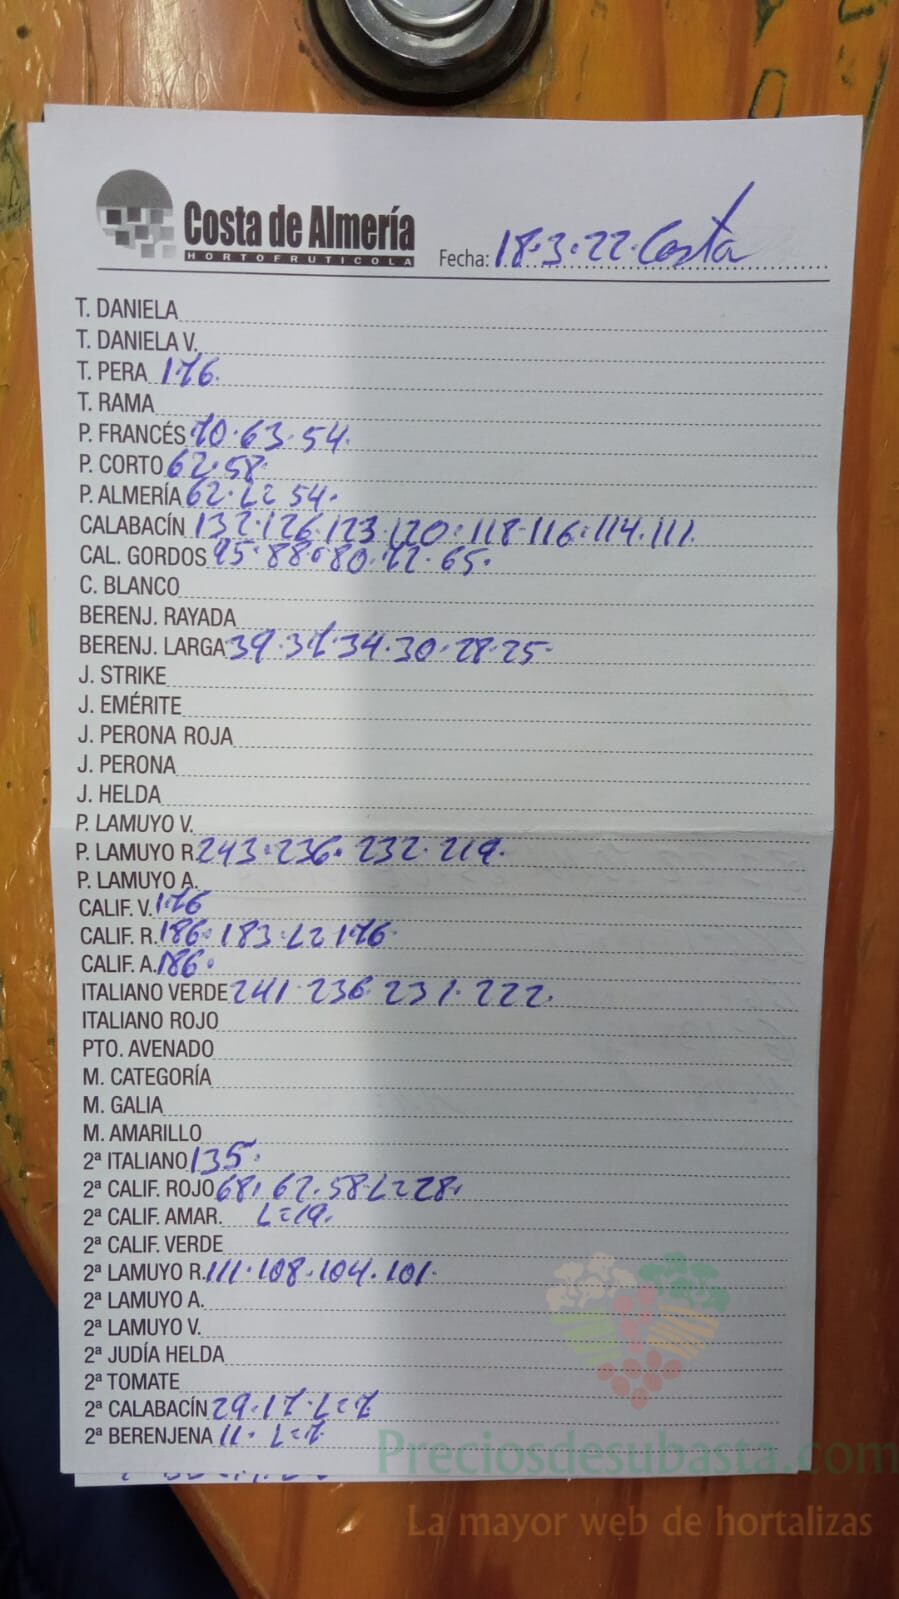 Costa de Almería
HORTOFRUTICOLA
Fecha: 18.3.22. Costa
T. DANIELA
T. DANIELA V.
T. PERA 176.
T. RAMA
P. FRANCÉS 70.63.54.
P. CORTO 62.58.
P. ALMERÍA 62. L= 54.
CALABACÍN 132.126.123.120.118.116.114.111.
CAL. GORDOS 95.88.80.72.65.
C. BLANCO
BERENJ. RAYADA
BERENJ. LARGA 39.37.34.30.28.25.
J. STRIKE
J. EMÉRITE
J. PERONA ROJA
J. PERONA
J. HELDA
P. LAMUYO V.
P. LAMUYO R. 243.236.232.219.
P. LAMUYO A.
CALIF. V. 176
CALIF. R. 186.183.L=176.
CALIF. A. 186.
ITALIANO VERDE 241.236.231.222.
ITALIANO ROJO
PTO. AVENADO
M. CATEGORÍA
M. GALIA
M. AMARILLO
2ª ITALIANO 135.
2ª CALIF. ROJO 68.62.58 L=28.
2ª CALIF. AMAR. L=19.
2ª CALIF. VERDE
2ª LAMUYO R. 111.108.104.101.
2ª LAMUYO A.
2ª LAMUYO V.
2ª JUDÍA HELDA
2ª TOMATE
2ª CALABACÍN 29.17.L=7
2ª BERENJENA 11. L=7.
Preciosdesubasta.com
La mayor web de hortalizas